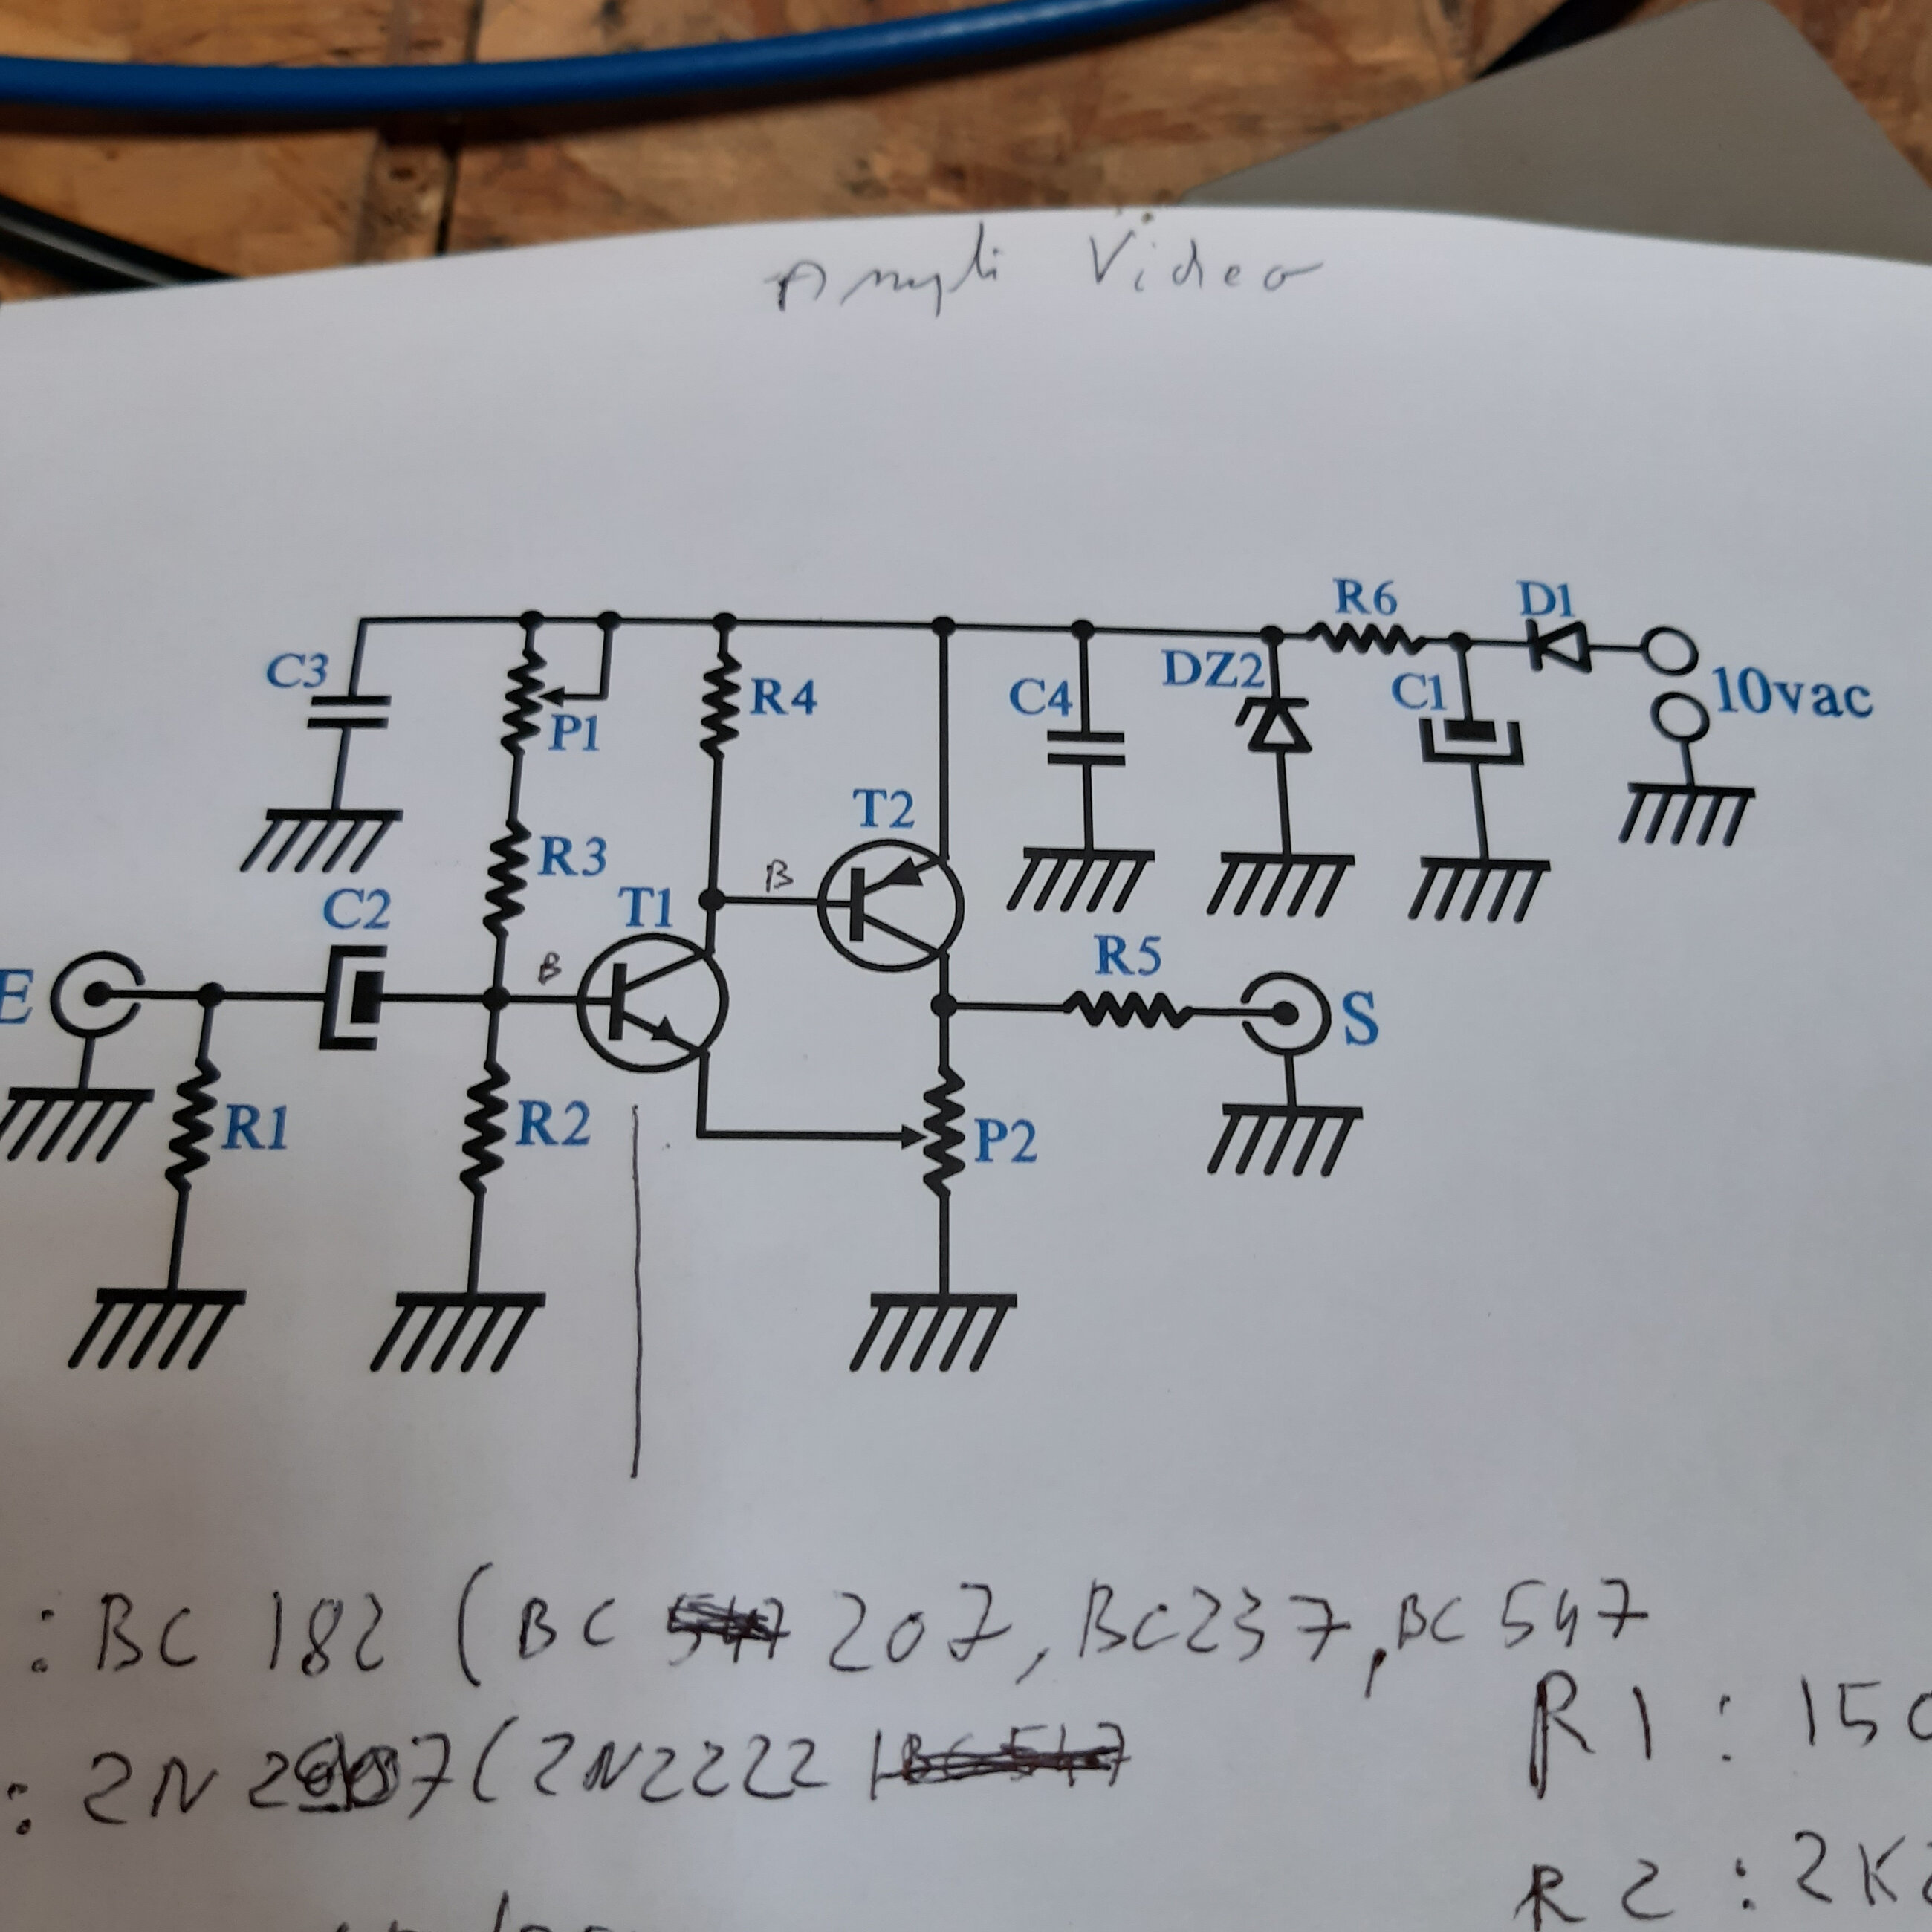 Ampli Video
R6 D1
C3 P1 R4 C4 DZ2 C1 10vac
T2
R3 B
C2 T1 B R5
E S
R1 R2 P2
: BC 182 (BC 207, BC237, BC 547
R1 : 150
: 2N 2907 (2N2222
R2 : 2K2